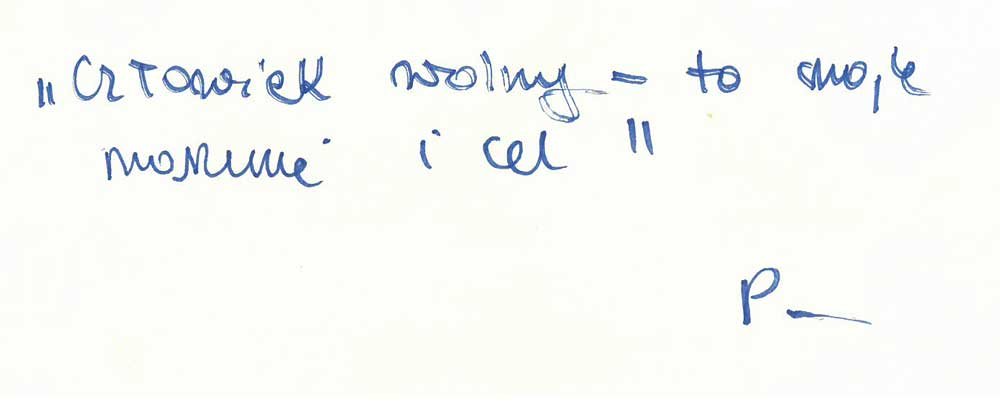 „Człowiek wolny – to moje
marzenie i cel"
P—